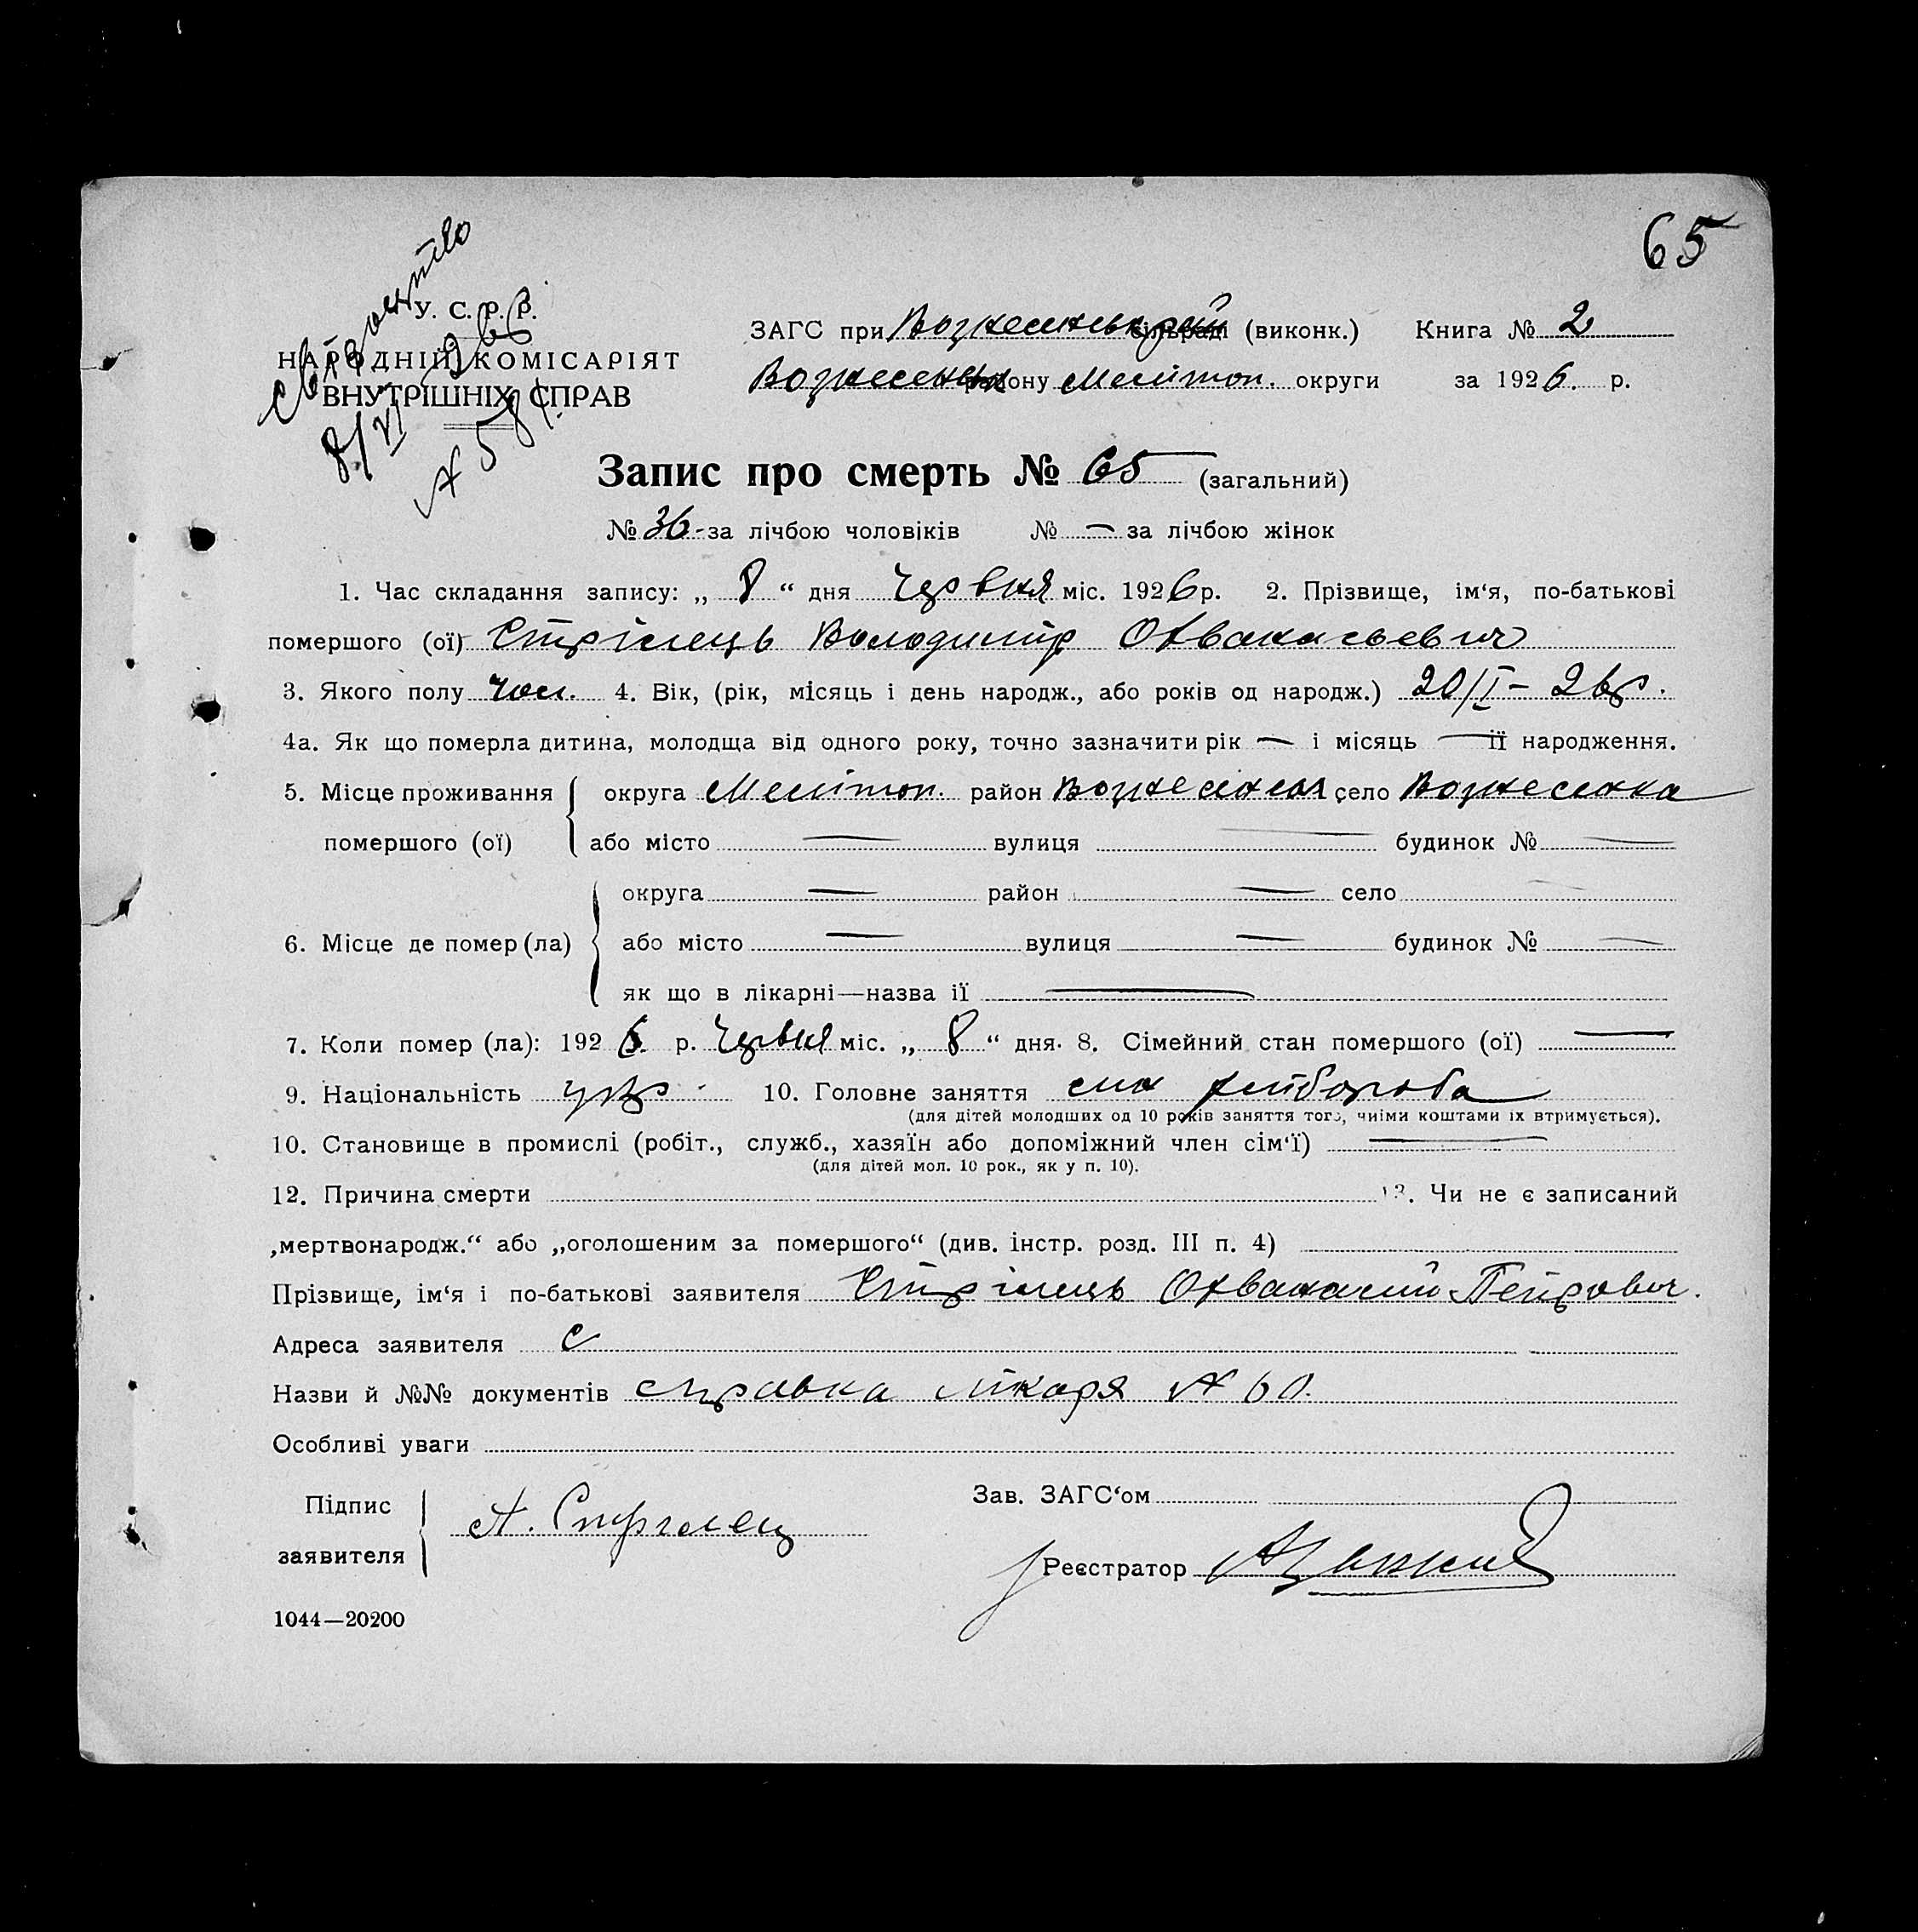 65
У. С. Р. Р.
НАРОДНІЙ КОМІСАРІЯТ
ВНУТРІШНІХ СПРАВ
8/VI 26
№ 581
ЗАГС при Вознесенськрай сільраді (виконк.) Книга № 2
Вознесенськ району Мелітоп. округи за 1926. р.
Запис про смерть № 65 (загальний)
№ 36 - за лічбою чоловіків № — за лічбою жінок
1. Час складання запису: „ 8 “ дня Червня міс. 1926 р. 2. Прізвище, ім‘я, по-батькові
помершого (ої) Стрілець Володимір Охванасьевич
3. Якого полу чол. 4. Вік, (рік, місяць і день народж., або років од народж.) 20/I – 26р.
4а. Як що померла дитина, молодща від одного року, точно зазначити рік — і місяць — її народження.
5. Місце проживання округа Мелітоп. район Вознесенськ село Вознесенка
помершого (ої) або місто — вулиця — будинок № —
округа — район — село —
6. Місце де помер (ла) або місто — вулиця — будинок № —
як що в лікарні—назва ії —
7. Коли помер (ла): 1926. р. Червня міс. „ 8 “ дня. 8. Сімейний стан помершого (ої) —
9. Національність укр. 10. Головне заняття син хлібороба
(для дітей молодших од 10 років заняття того, чиїми коштами їх втримується).
10. Становище в промислі (робіт., служб., хазяїн або допоміжний член сім‘ї) —
(для дітей мол. 10 рок., як у п. 10).
12. Причина смерти 13. Чи не є записаний
„мертвонародж.“ або „оголошеним за помершого“ (див. інстр. розд. III п. 4)
Прізвище, ім‘я і по-батькові заявителя Стрілець Охванасий Петрович.
Адреса заявителя с
Назви й №№ документів справка лікаря № 60.
Особливі уваги
Підпис
заявителя А. Стрілец
Зав. ЗАГС‘ом
Реєстратор
1044—20200